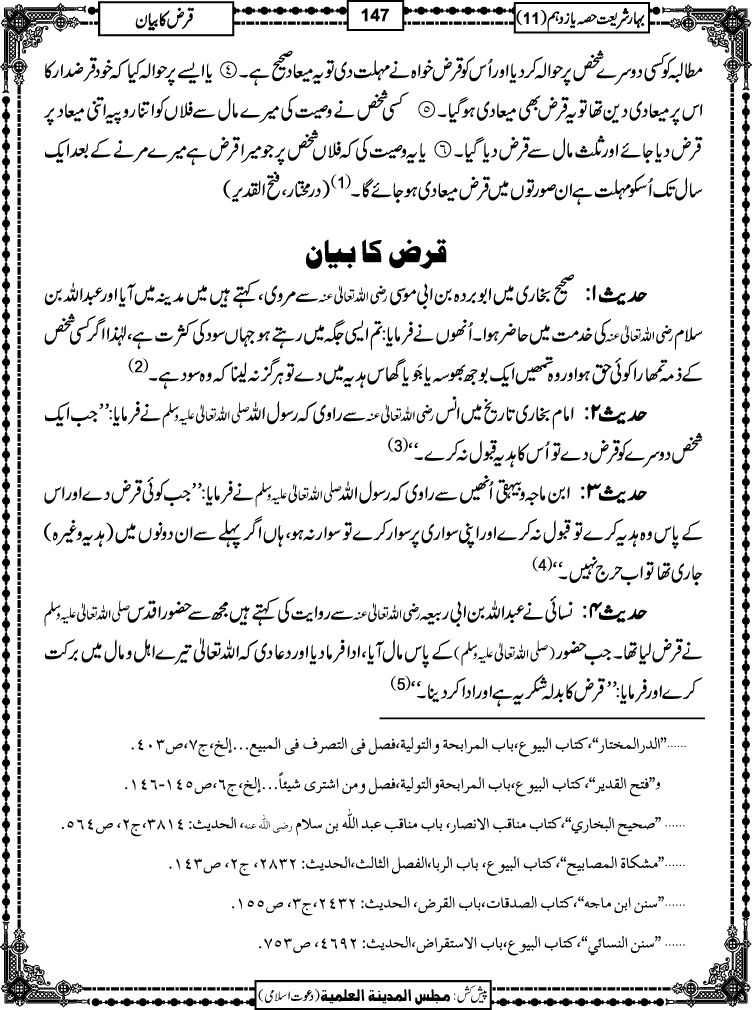 بہارِ شریعت حصہ یازدہم (11)
147
قرض کا بیان
مطالبہ کو کسی دوسرے شخص پر حوالہ کر دیا اور اُس کو قرض خواہ نے مہلت دی تو یہ میعاد صحیح ہے۔ ④ یا ایسے پر حوالہ کیا کہ خود قرضدار کا
اس پر میعادی دین تھا تو یہ قرض بھی میعادی ہوگیا۔ ⑤ کسی شخص نے وصیت کی میرے مال سے فلاں کو اتنا روپیہ اتنی میعاد پر
قرض دیا جائے اور ثلث مال سے قرض دیا گیا۔ ⑥ یا یہ وصیت کی کہ فلاں شخص پر جو میرا قرض ہے میرے مرنے کے بعد ایک
سال تک اُسکو مہلت ہے ان صورتوں میں قرض میعادی ہو جائے گا۔(1) (درمختار، فتح القدیر)
قرض کا بیان
حدیث ۱: صحیح بخاری میں ابو بردہ بن ابی موسیٰ رضی اللہ تعالیٰ عنہ سے مروی، کہتے ہیں میں مدینہ میں آیا اور عبداللہ بن
سلام رضی اللہ تعالیٰ عنہ کی خدمت میں حاضر ہوا۔ اُنھوں نے فرمایا: تم ایسی جگہ میں رہتے ہو جہاں سود کی کثرت ہے، لہٰذا اگر کسی شخص
کے ذمہ تمھارا کوئی حق ہو اور وہ تمھیں ایک بوجھ بھوسہ یا جَو یا گھاس ہدیہ میں دے تو ہرگز نہ لینا کہ وہ سود ہے۔(2)
حدیث ۲: امام بخاری تاریخ میں انس رضی اللہ تعالیٰ عنہ سے راوی کہ رسول اللہ صلی اللہ تعالیٰ علیہ وسلم نے فرمایا: ”جب ایک
شخص دوسرے کو قرض دے تو اُس کا ہدیہ قبول نہ کرے۔“(3)
حدیث ۳: ابن ماجہ و بیہقی اُنھیں سے راوی کہ رسول اللہ صلی اللہ تعالیٰ علیہ وسلم نے فرمایا: ”جب کوئی قرض دے اور اس
کے پاس وہ ہدیہ کرے تو قبول نہ کرے اور اپنی سواری پر سوار کرے تو سوار نہ ہو، ہاں اگر پہلے سے ان دونوں میں (ہدیہ وغیرہ)
جاری تھا تو اب حرج نہیں۔“(4)
حدیث ۴: نسائی نے عبداللہ بن ابی ربیعہ رضی اللہ تعالیٰ عنہ سے روایت کی کہتے ہیں مجھ سے حضور اقدس صلی اللہ تعالیٰ علیہ وسلم
نے قرض لیا تھا۔ جب حضور (صلی اللہ تعالیٰ علیہ وسلم) کے پاس مال آیا، ادا فرما دیا اور دعا دی کہ اللہ تعالیٰ تیرے اہل و مال میں برکت
کرے اور فرمایا: ”قرض کا بدلہ شکریہ ہے اور ادا کر دینا۔“(5)
......”الدرالمختار“،کتاب البیوع،باب المرابحة والتولیة،فصل فی التصرف فی المبیع...إلخ،ج٧،ص٤٠٣.
و”فتح القدیر“،کتاب البیوع،باب المرابحةوالتولیة،فصل ومن اشتری شیئاً...إلخ،ج٦،ص١٤٥-١٤٦.
...... ”صحیح البخاري“،کتاب مناقب الانصار، باب مناقب عبد اللّٰہ بن سلام رضی اللّٰہ عنہ، الحدیث: ٣٨١٤،ج٢، ص٥٦٤.
......”مشکاة المصابیح“،کتاب البیوع، باب الربا،الفصل الثالث،الحدیث: ٢٨٣٢، ج٢، ص١٤٣.
......”سنن ابن ماجه“،کتاب الصدقات،باب القرض، الحدیث: ٢٤٣٢،ج٣، ص١٥٥.
...... ”سنن النسائي“،کتاب البیوع،باب الاستقراض،الحدیث: ٤٦٩٢، ص٧٥٣.
پیش کش: مجلس المدینة العلمیة (دعوتِ اسلامی)